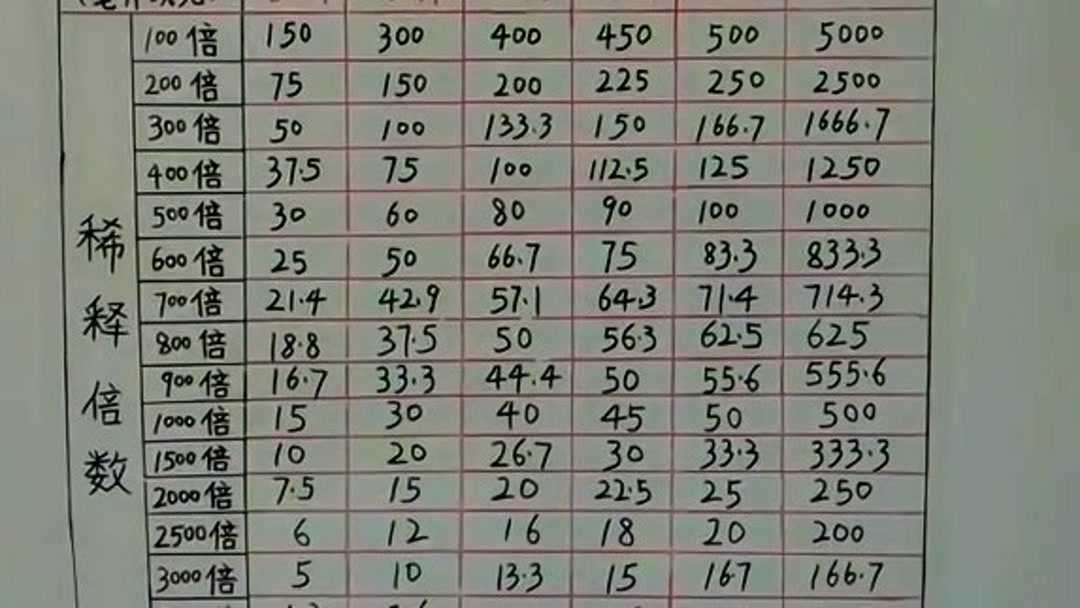 100倍 150 300 400 450 500 5000
200倍 75 150 200 225 250 2500
300倍 50 100 133.3 150 166.7 1666.7
400倍 37.5 75 100 112.5 125 1250
500倍 30 60 80 90 100 1000
600倍 25 50 66.7 75 83.3 833.3
700倍 21.4 42.9 57.1 64.3 71.4 714.3
800倍 18.8 37.5 50 56.3 62.5 625
900倍 16.7 33.3 44.4 50 55.6 555.6
1000倍 15 30 40 45 50 500
1500倍 10 20 26.7 30 33.3 333.3
2000倍 7.5 15 20 22.5 25 250
2500倍 6 12 16 18 20 200
3000倍 5 10 13.3 15 167 166.7
稀释倍数